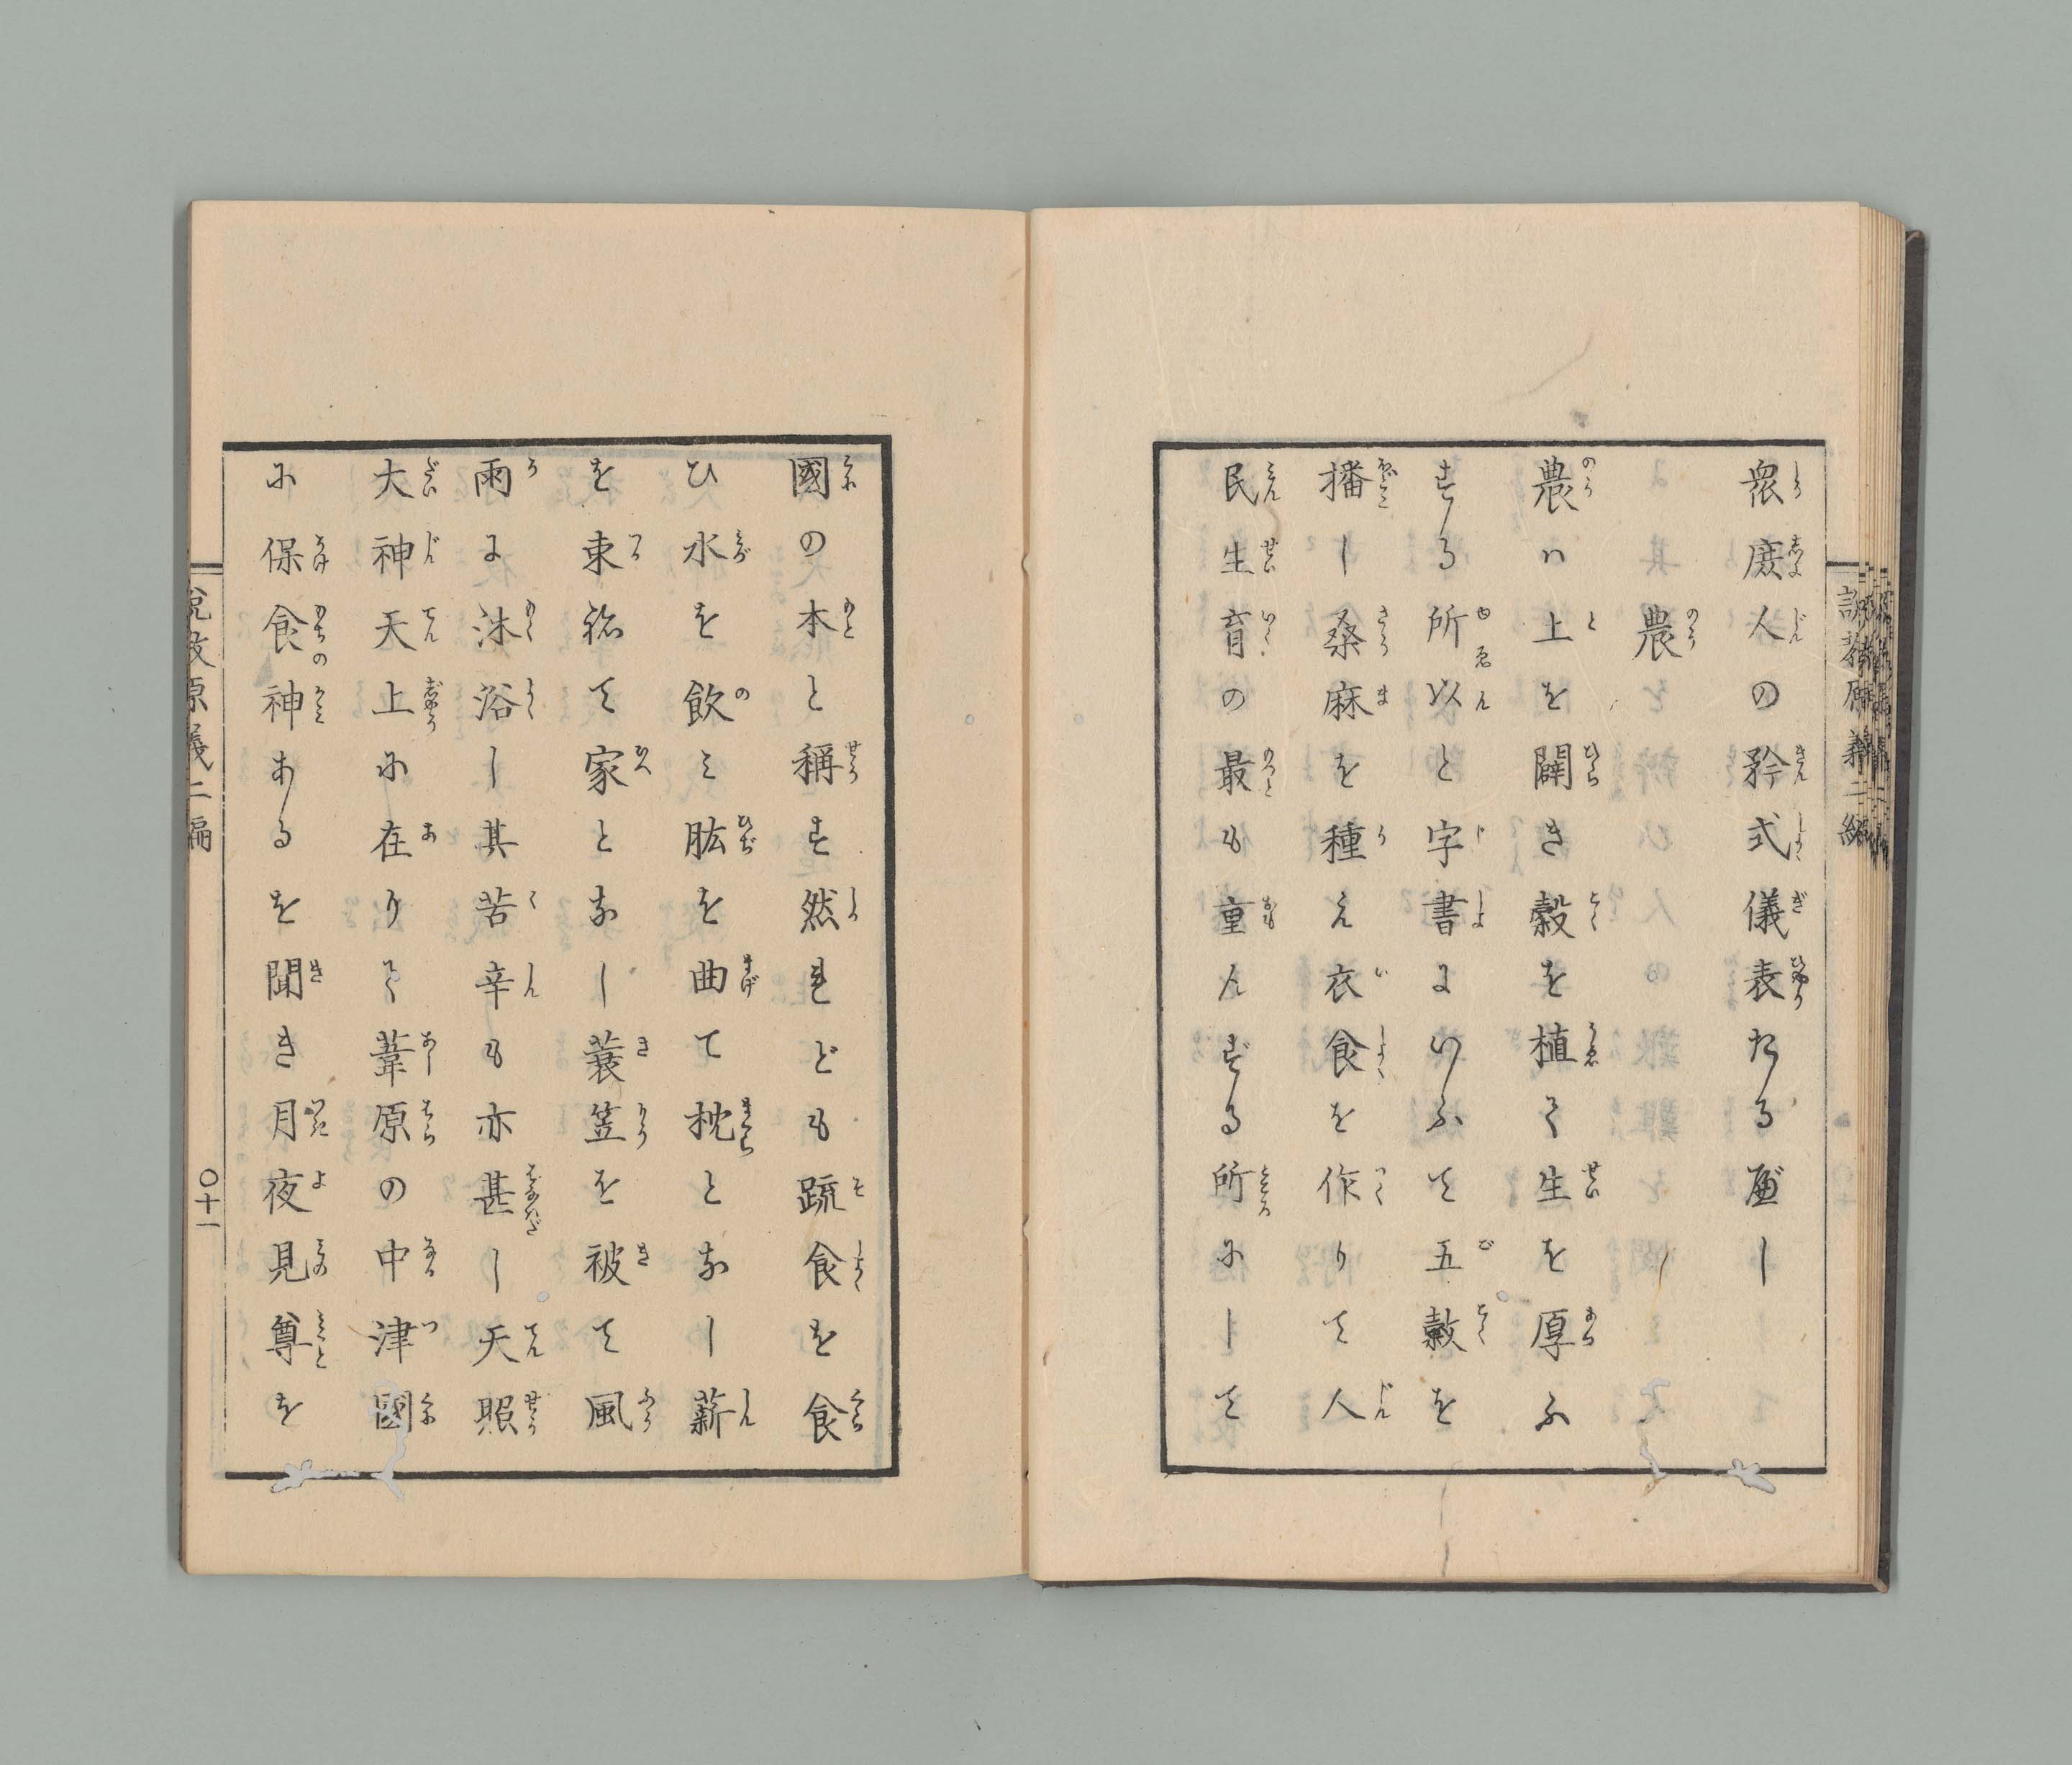 衆庶人の矜式儀表たる庿し
農
農ハ上を闢き穀を植て生を厚ふ
する所以と字書よいふて五穀を
播し桑麻を種え衣食を作りて人
民生育の最も重んずる所にして
國の本と稱す然れども蔬食を食
ひ水を飲み肱を曲て枕となし薪
を束祢て家となし蓑笠を被て風
雨よ沐浴し其苦辛も亦甚し天照
大神天上に在りて葦原の中津國
に保食神あるを聞き月夜見尊を
説教原義二編
〇十一